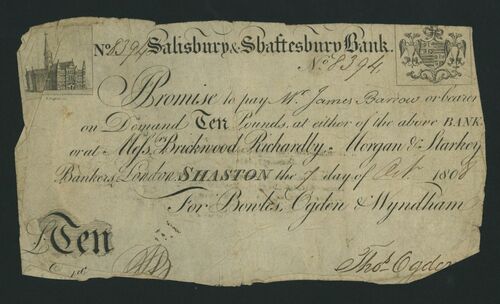 No. 8394 Salisbury & Shaftesbury Bank.
No. 8394.
I Promise to pay Mr. James Barrow or bearer
on Demand Ten Pounds, at either of the above BANK
or at Mess. Brickwood Morgan & Starkey
Bankers, London SHASTON the 7 day of Octr 1808
For Bowles, Ogden & Wyndham
£Ten
Thos. Ogden